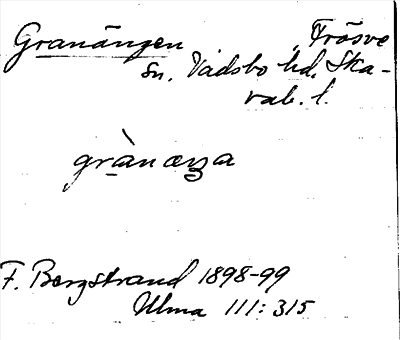 Granängen Frösve
sn. Vadsbo hd. Ska-
rab. l.
grànæŋa
F. Bergstrand 1898-99
Ulma 111:315